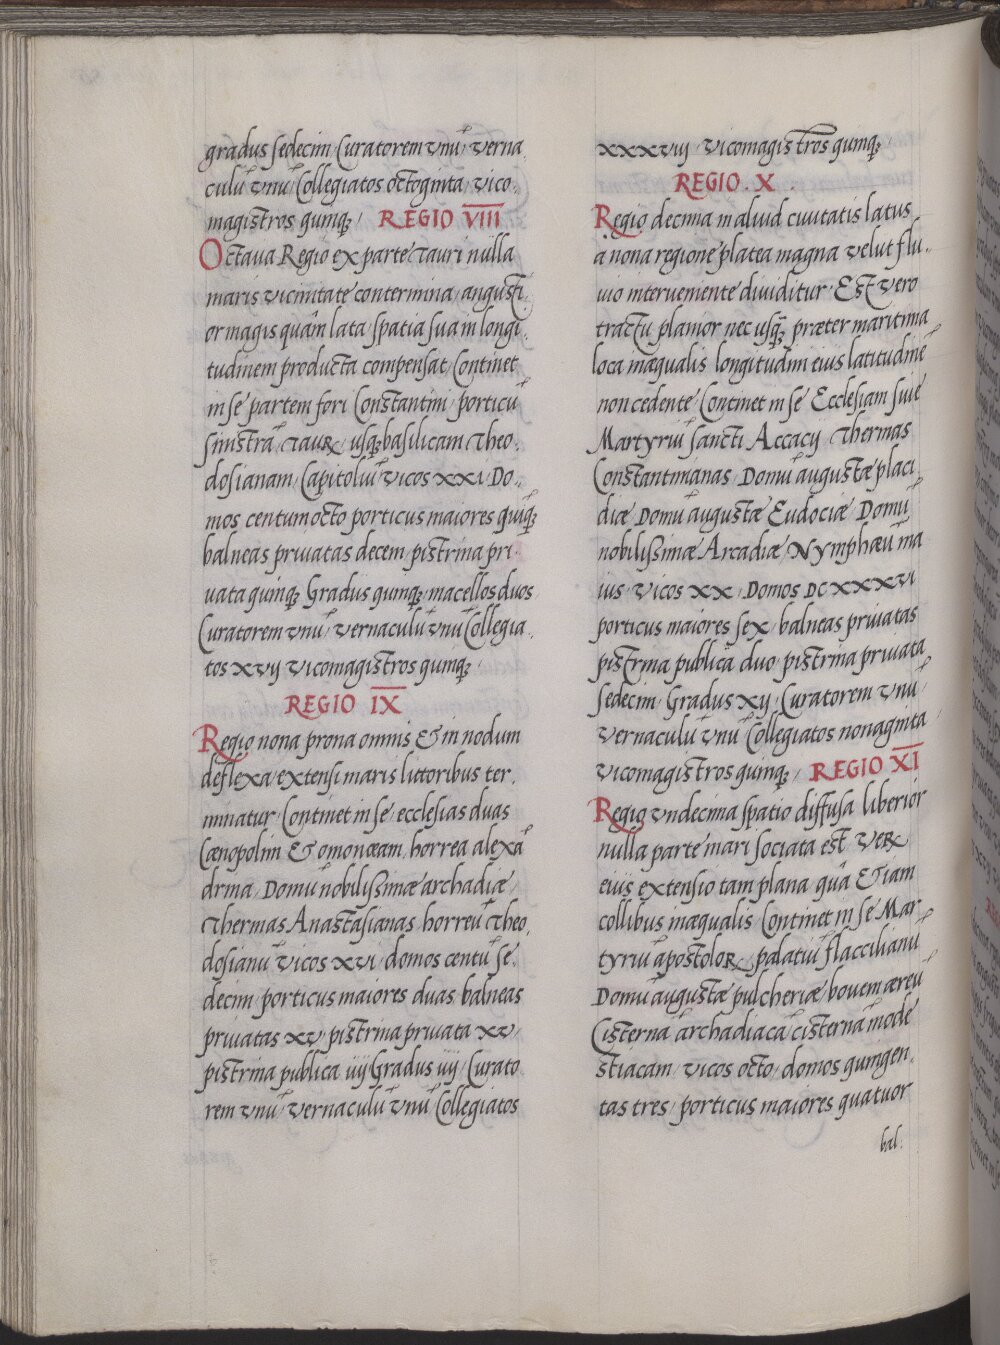 gradus sedecim Curatorem vnū verna
culū vnū Collegiatos octoginta vico.
magistros quinq; REGIO VIII
Octaua Regio ex parte Tauri nulla
maris vicinitate contermina angusti.
or magis quàm lata spatia sua in longi.
tudinem producta compensat Continet
in se partem fori Constantini porticū
sinistrā Tauꝝ usq; basilicam Theo.
dosianam Capitoliū vicos XXI Do.
mos centum octo porticus maiores quīq;
balneas priuatas decem pistrina pri.
uata quinq; Gradus quinq; macellos duos
Curatorem vnū vernaculū vnū Collegia.
tos xvij vicomagistros quinq;
REGIO IX
Regio nona prona omnis & in nodum
deflexa extensi maris littoribus ter.
minatur Continet in se ecclesias duas
Cænopolim & omonæam horrea alexā
drina Domū nobilissimæ archadiæ
Thermas Anastasianas horreū Theo.
dosianū vicos XVI domos centū se.
decim porticus maiores duas balneas
priuatas xv pistrina priuata xv
pistrina publica iiij Gradus iiij Curato
rem vnū vernaculū vnū Collegiatos
xxxvij vicomagistros quinq;
REGIO . X .
Regio decima in aluid ciuitatis latus
a nona regione platea magna velut flu..
uio interueniente diuiditur Est vero
tractu planior nec usq̃; præter maritima
loca inæqualis longitudini eius latitudinē
non cedente Continet in se Ecclesiam siue
Martyriū sancti Accacij Thermas
Constantinianas Domū augustæ placi
diæ Domū augustæ Eudociæ Domū
nobilissimæ Arcadiæ Nymphæū ma
ius vicos XX Domos DCXXXVI
porticus maiores sex balneas priuatas
pistrina publica duo pistrina priuata
sedecim Gradus xij Curatorem vnū
vernaculū vnū Collegiatos nonaginta
vicomagistros quinq; REGIO XI
Regio vndecima spatio diffusa liberior
nulla parte mari sociata est Veꝝ
eius extensio tam plana quā & iam
collibus inæqualis Continet in se Mar
tyriū apostoloꝝ palatiū flaccilianū
Domū augustæ pulcheriæ bouem æreū
Cisternā archadiacā cisternā mode
stiacam vicos octo domos quingen.
tas tres porticus maiores quatuor
bal.